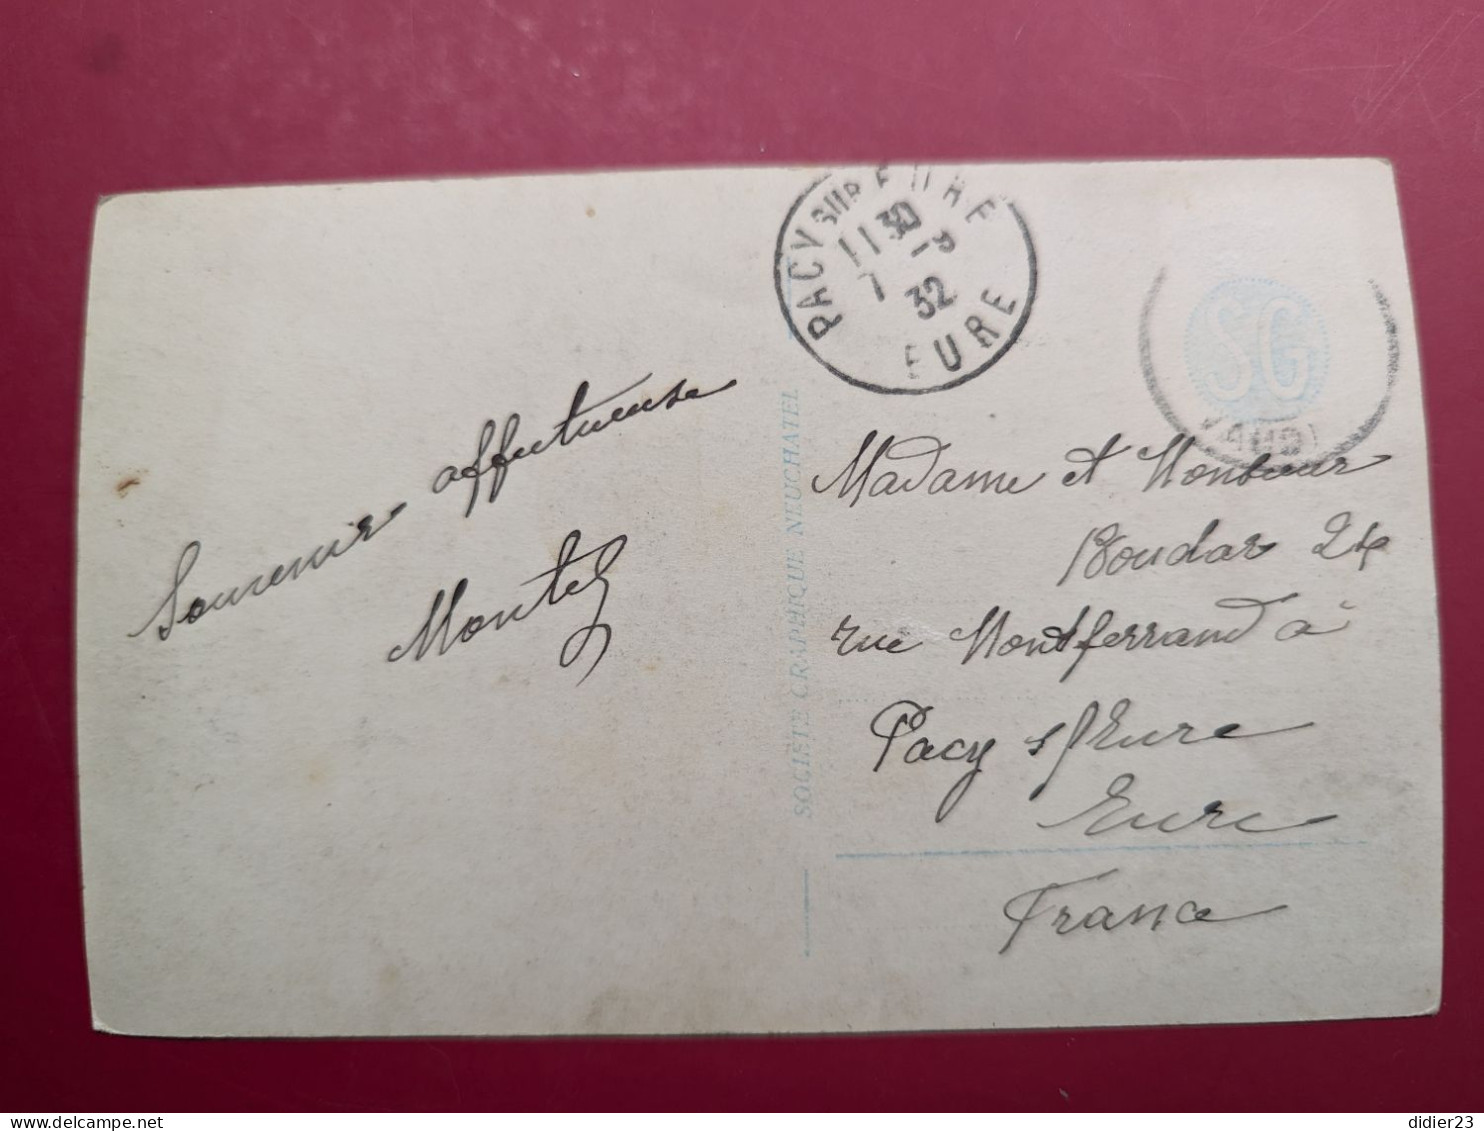 PACY SUR EURE
11 30
7 -9
32
EURE
SG
VAUD
Souvenir affectueuse
Montel
SOCIÉTÉ GRAPHIQUE NEUCHATEL
Madame et Monsieur
Boudar 24
rue Montferrand à
Pacy s/Eure
Eure
France
didier23